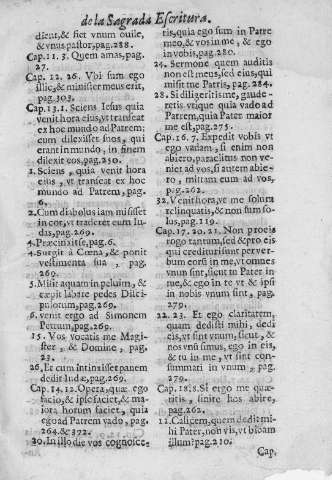 de la Sagrada Escritura.
dient, & fiet vnum ouile,
& vnus pastor, pag. 288.
Cap. 11. 3. Quem amas, pag.
27.
Cap. 12. 26. Vbi sum ego
illic, & minister meus erit,
pag. 303.
Cap. 13. 1. Sciens Iesus quia
venit hora eius, vt transeat
ex hoc mundo ad Patrem;
cum dilexisset suos, qui
erant in mundo, in finem
dilexit eos, pag. 250.
1. Sciens, quia venit hora
eius, vt transeat ex hoc
mundo ad Patrem, pag.
6.
2. Cum diabolus iam misisset
in cor, vt traderet eum Iu-
das, pag. 269.
4. Præcinxit se, pag. 6.
4. Surgit à Cœna, & ponit
vestimenta sua, pag.
269.
5. Misit aquam in peluim, &
cœpit labare pedes Disci-
pulorum, pag. 269.
6. venit ergo ad Simonem
Petrum, pag. 269.
15. Vos vocatis me Magis-
ter, & Domine, pag.
23.
26. Et cum intinxisset panem
dedit Iudæ, pag. 269.
Cap. 14. 12. Opera, quæ ego
facio, & ipse faciet, & ma-
iora horum faciet, quia
ego ad Patrem vado, pag.
264. & 372.
20. In illo die vos cognosce-
tis, quia ego sum in Patre
meo, & vos in me, & ego
in vobis, pag. 280.
24. Sermone quem auditis
non est meus, sed eius, qui
misit me Patris, pag. 284.
28. Si diligeritis me, gaude-
retis vtique quia vado ad
Patrem, quia Pater maior
me est, pag. 275.
Cap. 16. 7. Expedit vobis vt
ego vadam, si enim non
abiero, paraclitus non ve-
niet ad vos, si autem abie-
ro, mittam eum ad vos,
pag. 262.
32. Venit hora, vt me solum
relinquatis, & non sum so-
lus, pag. 119.
Cap. 17. 20. 21. Non pro eis
rogo tantum, sed & pro eis
qui credituri sunt per ver-
bum eorum in me, vt omnes
vnum sint, sicut tu Pater in
me, & ego in te vt & ipsi
in nobis vnum sint, pag.
279.
22. 23. Et ego claritatem,
quam dedisti mihi, dedi
eis, vt sint vnum, sicut, &
nos vnum sumus, ego in eis,
& tu in me, vt sint con-
summati in vnum, pag.
279.
Cap. 18. 8. Si ergo me quæ-
ritis, sinite hos abire,
pag. 262.
11. Calicem, quem dedit mi-
hi Pater, non vis, vt bibam
illum? pag. 210.
Cap.